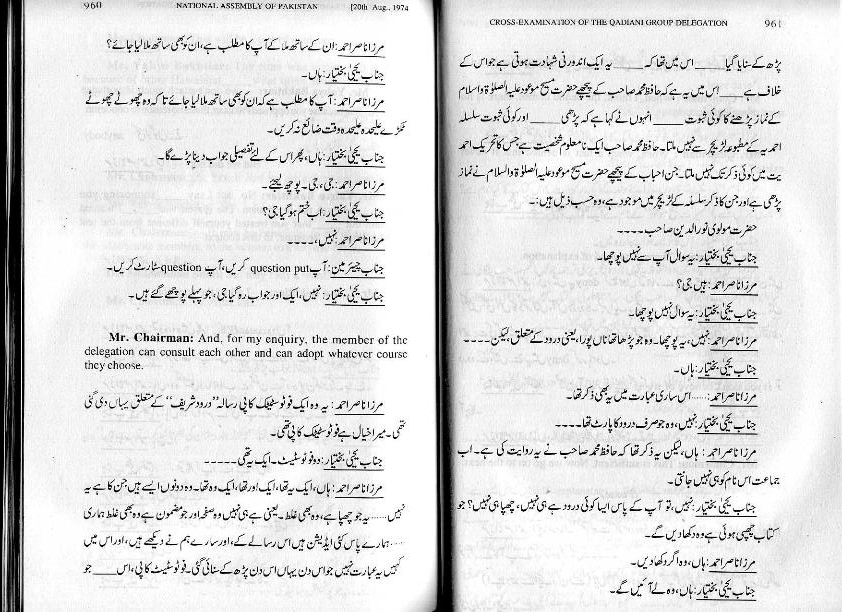 960 NATIONAL ASSEMBLY OF PAKISTAN [20th Aug., 1974
مرزا ناصر احمد: ان کے ساتھ ملا کے آپ کا مطلب ہے، ان کو بھی ساتھ ملا لیا جائے؟
جناب یحییٰ بختیار: ہاں۔
مرزا ناصر احمد: آپ کا مطلب ہے کہ ان کو بھی ساتھ ملا لیا جائے تاکہ وہ چھوٹے چھوٹے
ٹکڑے علیحدہ علیحدہ وقت ضائع نہ کریں۔
جناب یحییٰ بختیار: ہاں، پھر اس کے لئے تفصیلی جواب دینا پڑے گا۔
مرزا ناصر احمد: جی، جی۔ پوچھ لیجئے۔
جناب یحییٰ بختیار: اب ختم ہو گیا جی؟
مرزا ناصر احمد: نہیں، ۔۔۔۔
جناب چیئرمین: آپ question put کریں، آپ question سٹارٹ کریں۔
جناب یحییٰ بختیار: نہیں، ایک اور جواب رہ گیا جی، جو پہلے پوچھے گئے ہیں۔
Mr. Chairman: And, for my enquiry, the member of the
delegation can consult each other and can adopt whatever course
they choose.
مرزا ناصر احمد: یہ وہ ایک فوٹو سٹیٹک کاپی رسالہ ”درود شریف“ کے متعلق یہاں دی گئی
تھی۔ میرا خیال ہے فوٹو سٹیٹک کاپی تھی۔
جناب یحییٰ بختیار: دو فوٹو سٹیٹ۔ ایک یہ تھی۔ ۔۔۔۔۔
مرزا ناصر احمد: ہاں، ایک یہ تھا، ایک اور تھا، ایک وہ تھا۔ وہ دونوں ایسے ہیں جن کا ہے یہ
نہیں ...... یہ جو چھپا ہے، وہ بھی غلط۔ یعنی ہے ہی نہیں وہ صفحہ اور جو مضمون ہے وہ بھی غلط ہماری
..... ہمارے پاس کئی ایڈیشن ہیں اس رسالے کے، اور سارے ہم نے دیکھے ہیں، اور اس میں
کہیں یہ عبارت نہیں جو اس دن یہاں اس دن پڑھ کے سنائی گئی۔ فوٹو سٹیٹک کاپی، اس ___ جو
CROSS-EXAMINATION OF THE QADIANI GROUP DELEGATION 961
پڑھ کے سنایا گیا ___ اس میں تھا کہ ___ یہ ایک اندرونی شہادت ہوتی ہے جو اس کے
خلاف ہے ___ اس میں یہ ہے کہ حافظ محمد صاحب کے پیچھے حضرت مسیح موعود علیہ الصلوٰۃ والسلام
کے نماز پڑھنے کا کوئی ثبوت ___ انہوں نے کہا ہے کہ پڑھی ___ اور کوئی ثبوت سلسلہ
احمدیہ کے مطبوعہ لٹریچر سے نہیں ملتا۔ حافظ محمد صاحب ایک نامعلوم شخصیت ہے جس کا تحریک احمد
یت میں کوئی ذکر تک نہیں ملتا۔ جن احباب کے پیچھے حضرت مسیح موعود علیہ الصلوٰۃ والسلام نے نماز
پڑھی ہے اور جن کا ذکر سلسلہ کے لٹریچر میں موجود ہے، وہ حسب ذیل ہیں:۔
حضرت مولوی نور الدین صاحب ۔۔۔۔
جناب یحییٰ بختیار: یہ سوال آپ سے نہیں پوچھا۔
مرزا ناصر احمد: ہیں جی؟
جناب یحییٰ بختیار: یہ سوال نہیں پوچھا۔
مرزا ناصر احمد: نہیں، یہ پوچھا۔ وہ جو پڑھا تھا ناں پورا، یعنی درود کے متعلق، لیکن ۔۔۔۔
جناب یحییٰ بختیار: ہاں۔
مرزا ناصر احمد: ...... اس ساری عبارت میں یہ بھی ذکر تھا۔
جناب یحییٰ بختیار: نہیں، وہ جو صرف درود کا پارٹ تھا ۔۔۔۔
مرزا ناصر احمد: ہاں، لیکن یہ ذکر تھا کہ حافظ محمد صاحب نے یہ روایت کی ہے۔ اب
جماعت اس نام کو ہی نہیں جانتی۔
جناب یحییٰ بختیار: نہیں، تو آپ کے پاس ایسا کوئی درود ہے ہی نہیں، چھپا ہی نہیں؟ جو
کتاب چھپی ہوئی ہے وہ دکھا دیں گے۔
مرزا ناصر احمد: ہاں، وہ اگر دکھا دیں۔
جناب یحییٰ بختیار: ہاں، وہ لے آئیں گے۔